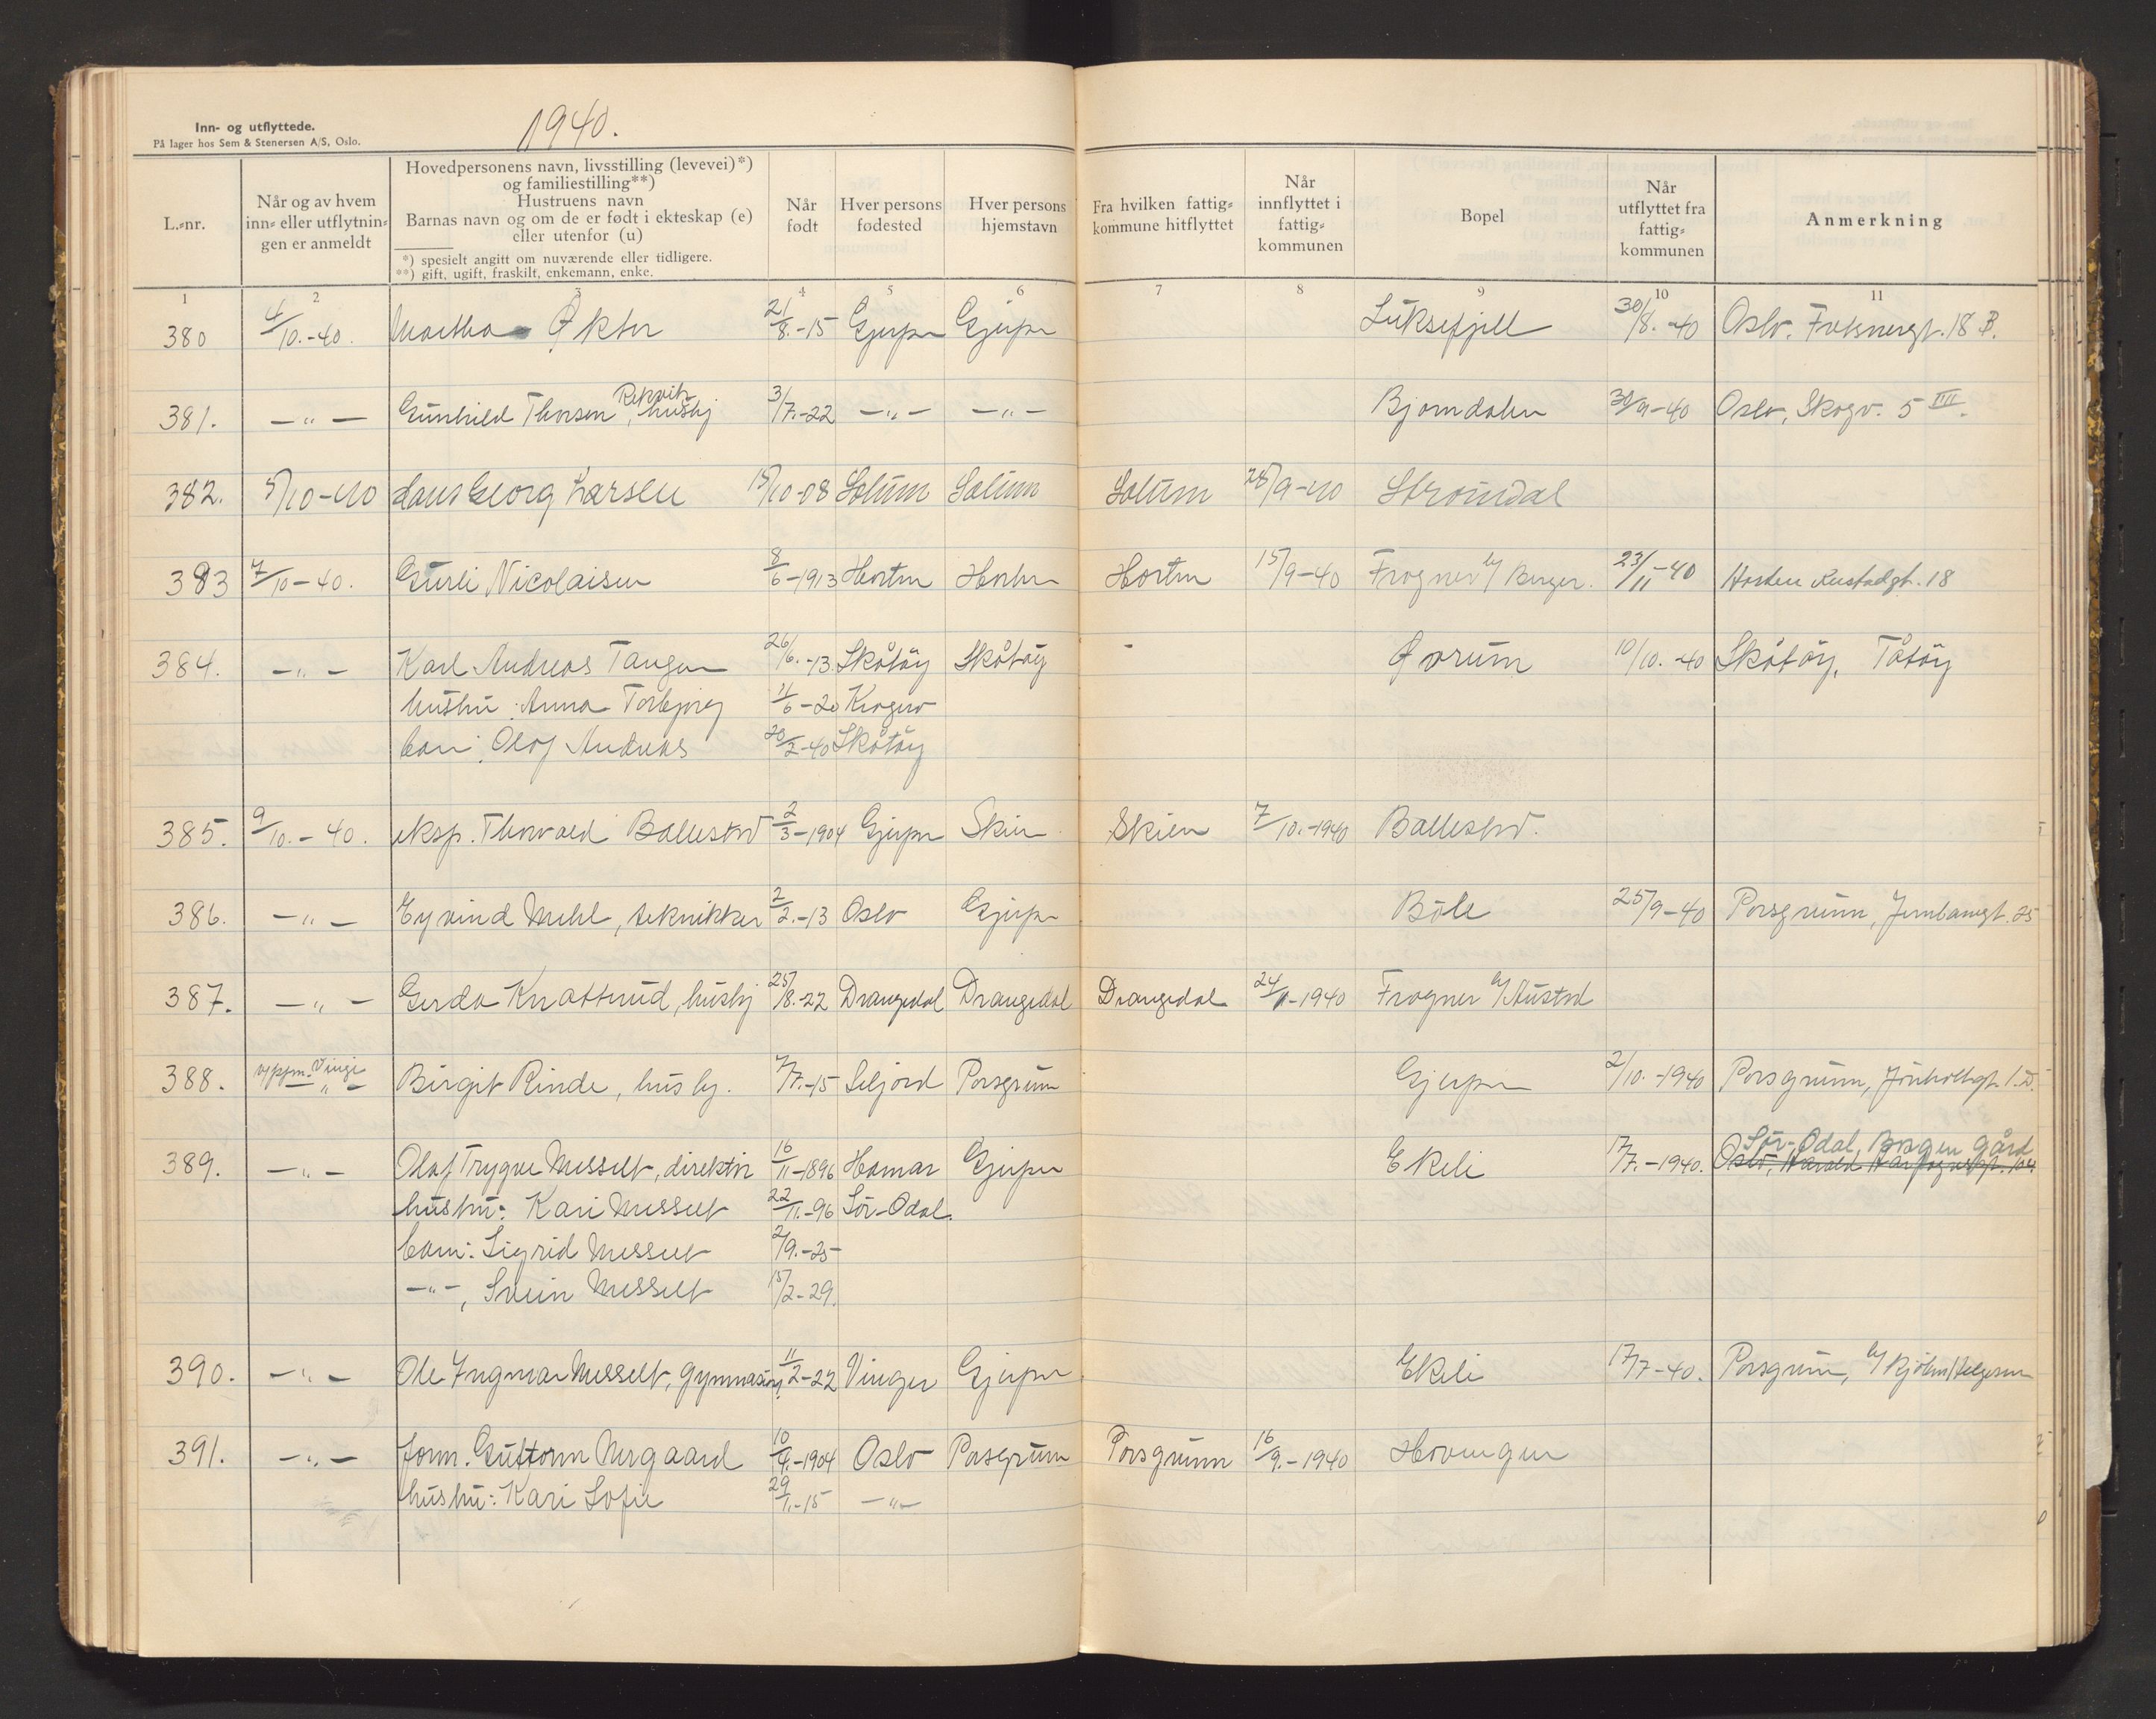 Inn- og utflyttede.
På lager hos Sem & Stenersen A/S, Oslo.
1940.
L.-nr.
Når og av hvem inn- eller utflytningen er anmeldt
Hovedpersonens navn, livsstilling (levevei)*) og familiestilling**) Hustruens navn Barnas navn og om de er født i ekteskap (e) eller utenfor (u)
*) spesielt angitt om nuværende eller tidligere.
**) gift, ugift, fraskilt, enkemann, enke.
Når født
Hver persons fødested
Hver persons hjemstavn
Fra hvilken fattigkommune hitflyttet
Når innflyttet i fattigkommunen
Bopel
Når utflyttet fra fattigkommunen
Anmerkning
1 2 3 4 5 6 7 8 9 10 11
380 4/10.-40. Martha Økter 21/8.-15 Gjerpen Gjerpen Luksefjell 30/8.-40 Oslo. Fuksnergt. 18 B.
381. -"- Gunhild Thorsen, husbj 3/7.-22 -"- -"- Bjorndalen 30/9-40 Oslo, Skogv. 5 IIII.
382. 5/10-40 Hans Georg Larsen 15/10-08 Solum Solum Solum 28/9-40 Strømdal
383 7/10-40. Gurli Nicolaisen 8/6-1913 Horten Horten Horten 15/9-40 Frogner b/ Berger. 23/11-40 Horten Rustadgt. 18
384. -"- Karl Andreas Tangen 26/6.-13 Skåtøy Skåtøy - Ørum 10/10.-40 Skåtøy, Tåtøy
hustru: Anna Torbjørg 4/6-20 Kragerø
barn: Olof Andreas 20/2-40 Skåtøy
385. 9/10.-40. eksp. Thorvald Ballestad 2/3-1904 Gjerpen Skien Skien 7/10.-1940 Ballestad.
386. -"- Eyvind Mehl, tekniker 2/2.-13 Oslo Gjerpen Böle 25/9-40 Porsgrunn, Jernbanegt. 25
387. -"- Gerda Knattrud, husbj 25/8.-22 Drangedal Drangedal Drangedal 24/9-1940 Frogner b/ Austad
388. -"- Birgit Rinde, husbj. 7/7.-15 Seljord Porsgrunn Gjerpen 2/10.-1940 Porsgrunn, Jønholtgt. 1.D.
389. -"- Olaf Trygve Messelt, direktør 16/11-1896 Hamar Gjerpen Ekeli 17/7.-1940. Sør-Odal, Borgen gård
Oslo, Harald Hårfagresgt. 104
hustru: Kari Messelt 22/11.-96 Sør-Odal.
barn: Sigrid Messelt 2/9.-25
-"-, Svein Messelt 15/2-29.
390. -"- Ole Ingmar Messelt, gymnasing 11/2-22 Vinger Gjerpen Ekeli 17/7-40. Porsgrunn, b/ Helgesen
391. -"- form. Guttorm Nergaard 10/4.-1904 Oslo Porsgrunn Porsgrunn 16/9.-1940 Hovengen
hustru: Kari Sofie 29/1.-15 -"-